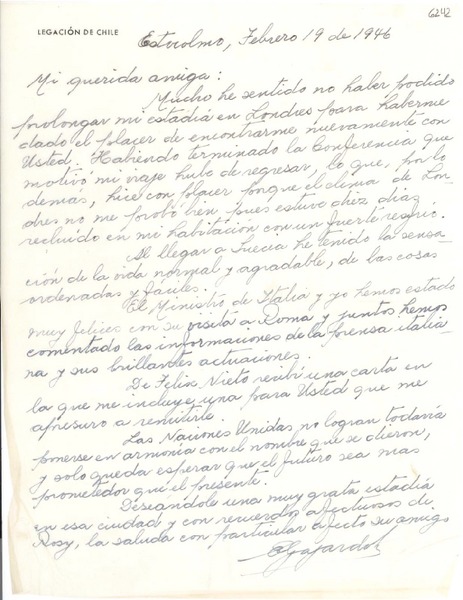 6242
LEGACIÓN DE CHILE
Estocolmo, Febrero 19 de 1946
Mi querida amiga:
Mucho he sentido no haber podido
prolongar mi estadía en Londres para haberme
dado el placer de encontrarme nuevamente con
Usted. Habiendo terminado la Conferencia que
motivó mi viaje hube de regresar, lo que, por lo
demas, hice con placer porque el clima de Lon-
dres no me probó bien pues estuve diez días
recluído en mi habitación con un fuerte resfrío.
Al llegar a Suecia he tenido la sensa-
ción de la vida normal y agradable, de las cosas
ordenadas y fáciles.
El Ministro de Italia y yo hemos estado
muy felices con su visita a Roma y juntos hemos
comentado las informaciones de la prensa italia-
na y sus brillantes actuaciones.
De Felix Nieto recibí una carta en
la que me incluye una para Usted que me
apresuro a remitirle.
Las Naciones Unidas no logran todavía
ponerse en armonía con el nombre que se dieron,
y solo queda esperar que el futuro sea mas
prometedor que el presente.
Deseándole una muy grata estadía
en esa ciudad y con recuerdos afectuosos de
Rosy, la saluda con particular afecto su amigo
EGajardo